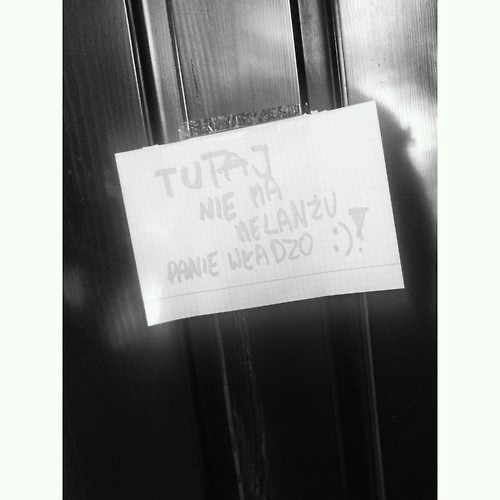 TUTAJ
NIE MA
MELANŻU
PANIE WŁADZO :)!